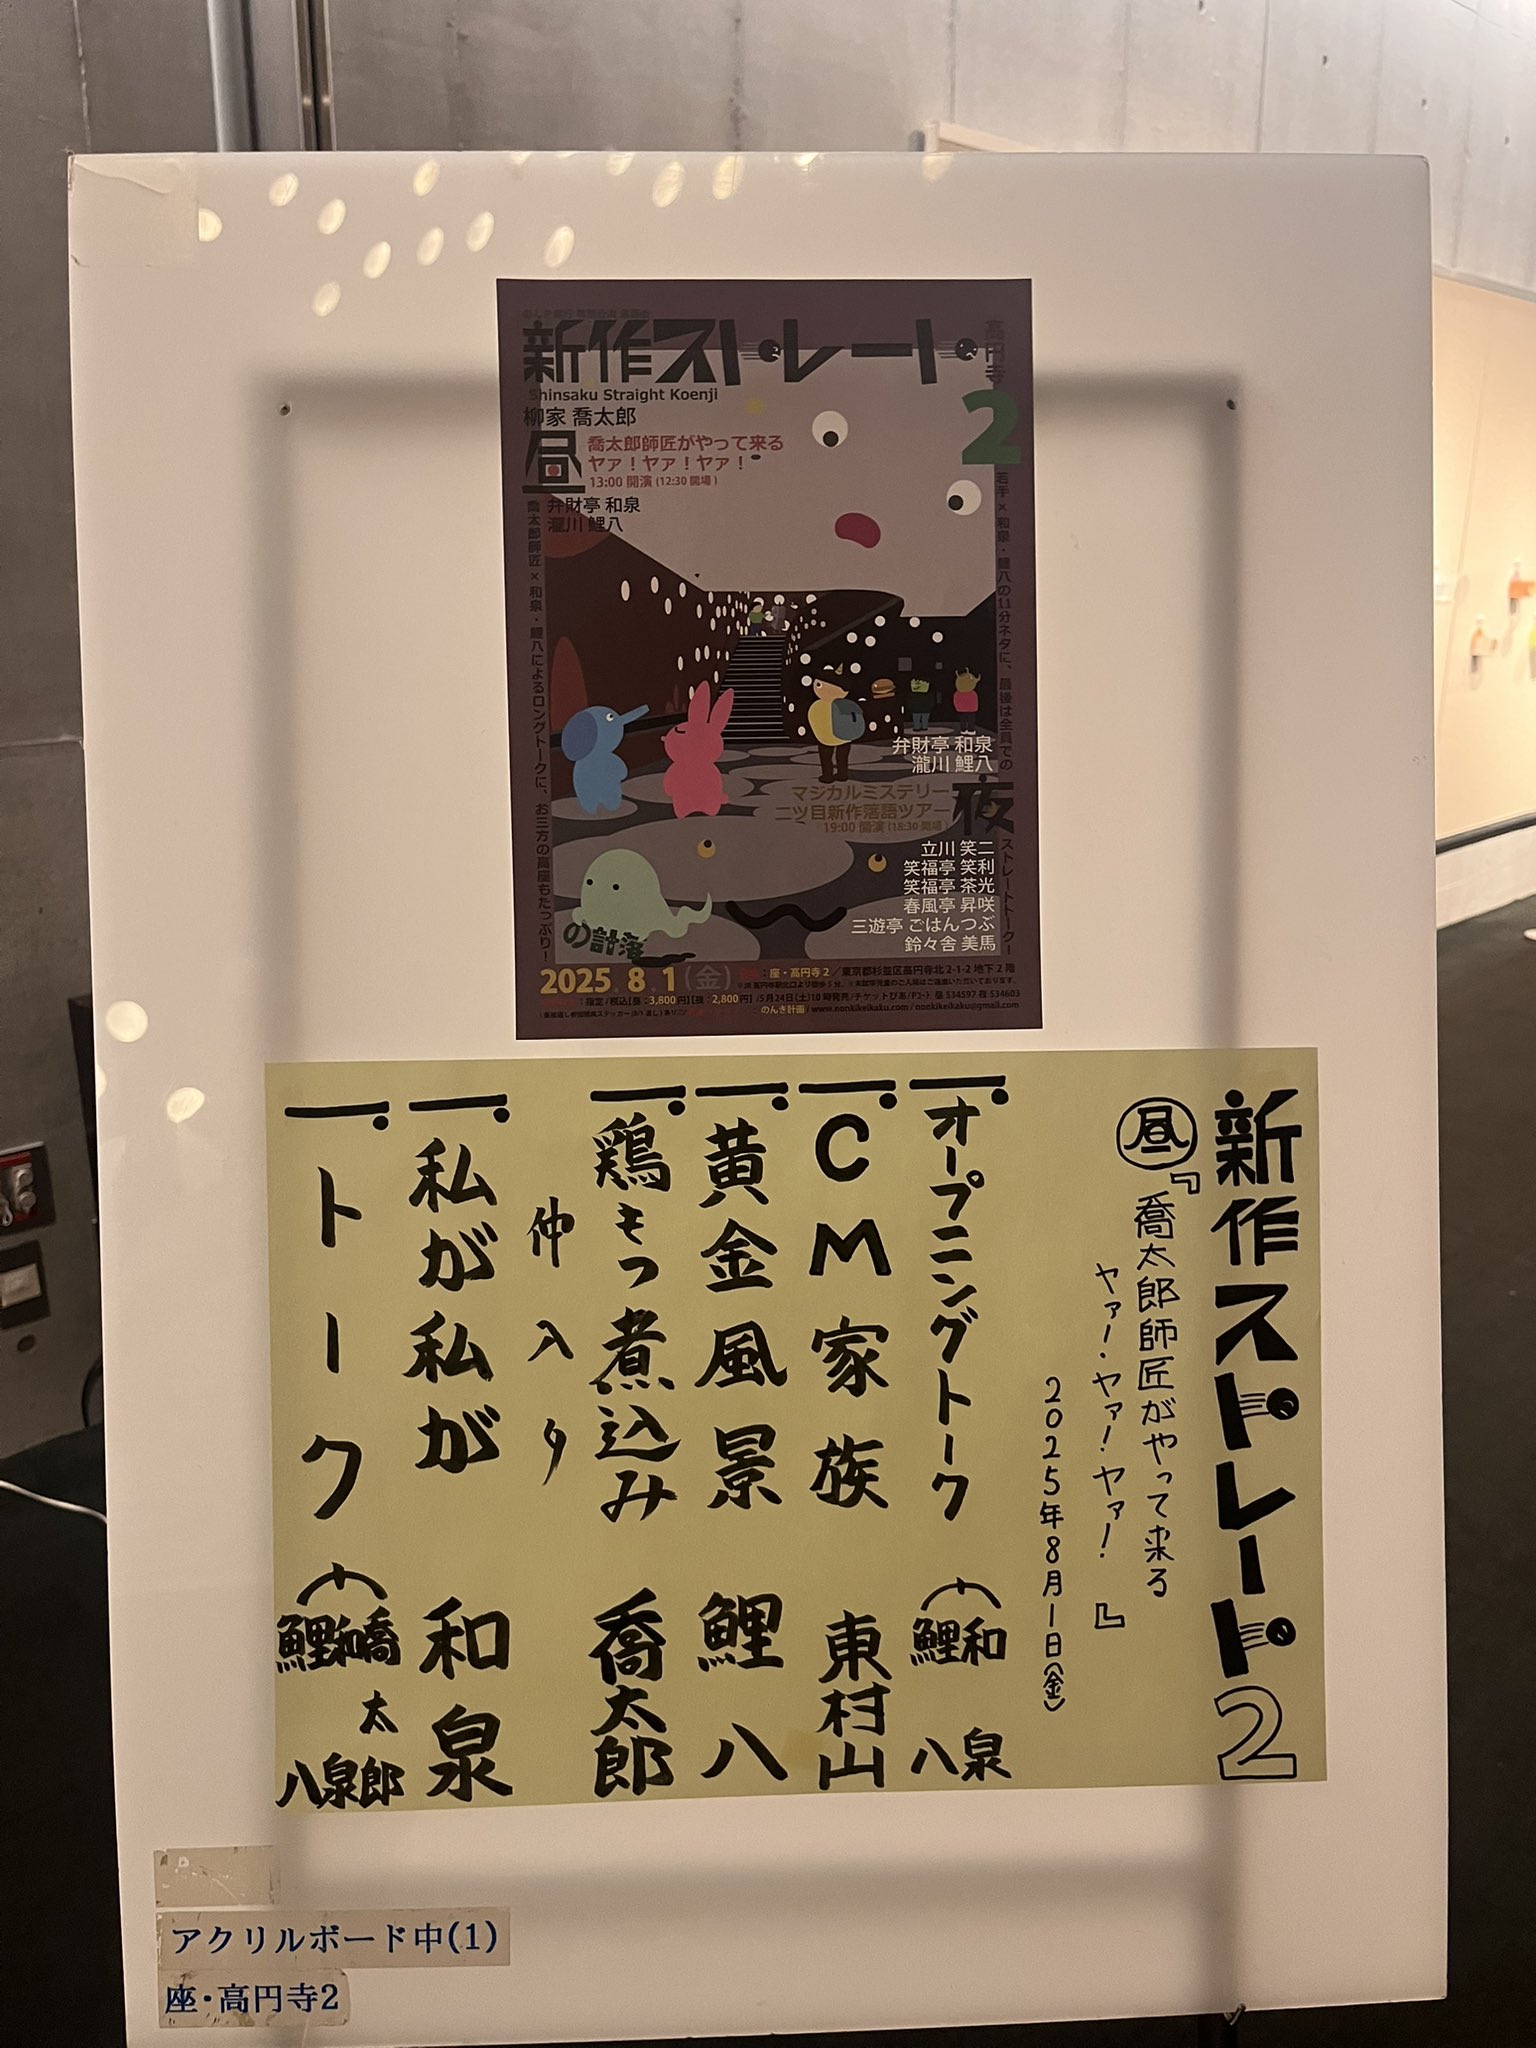 新作ストレート
高円寺
2
Shinsaku Straight Koenji
柳家 喬太郎
昼
喬太郎師匠がやって来る
ヤァ!ヤァ!ヤァ!
13:00 開演(12:30 開場)
弁財亭 和泉
瀧川 鯉八
喬太郎師匠×和泉・鯉八によるロングトークに、お三方の高座もたっぷり!
若手×和泉・鯉八の11分ネタに、最後は全員でのストレートトーク!
弁財亭 和泉
瀧川 鯉八
マジカルミステリー
二ツ目新作落語ツアー
夜
19:00 開演(18:30 開場)
立川 笑二
笑福亭 笑利
笑福亭 茶光
春風亭 昇咲
三遊亭 ごはんつぶ
鈴々舎 美馬
2025.8.1(金)
:座・高円寺2/東京都杉並区高円寺北2-1-2 地下2階
:指定/税込【昼:3,800円】【夜:2,800円】/5月24日(土)10時発売/チケットぴあ/Pコード 昼 534597 夜 534603
:のんき計画/www.nonkikeikaku.com/nonkikeikaku@gmail.com
新作ストレート2
昼『喬太郎師匠がやって来る
ヤァ!・ヤァ!・ヤァ!』
2025年8月1日(金)
一.オープニングトーク 和泉 鯉八
一.CM家族 東村山
一.黄金風景 鯉八
一.鶏もつ煮込み 喬太郎
仲入り
一.私が私が 和泉
一.トーク 喬太郎 和泉 鯉八
アクリルボード中(1)
座・高円寺2